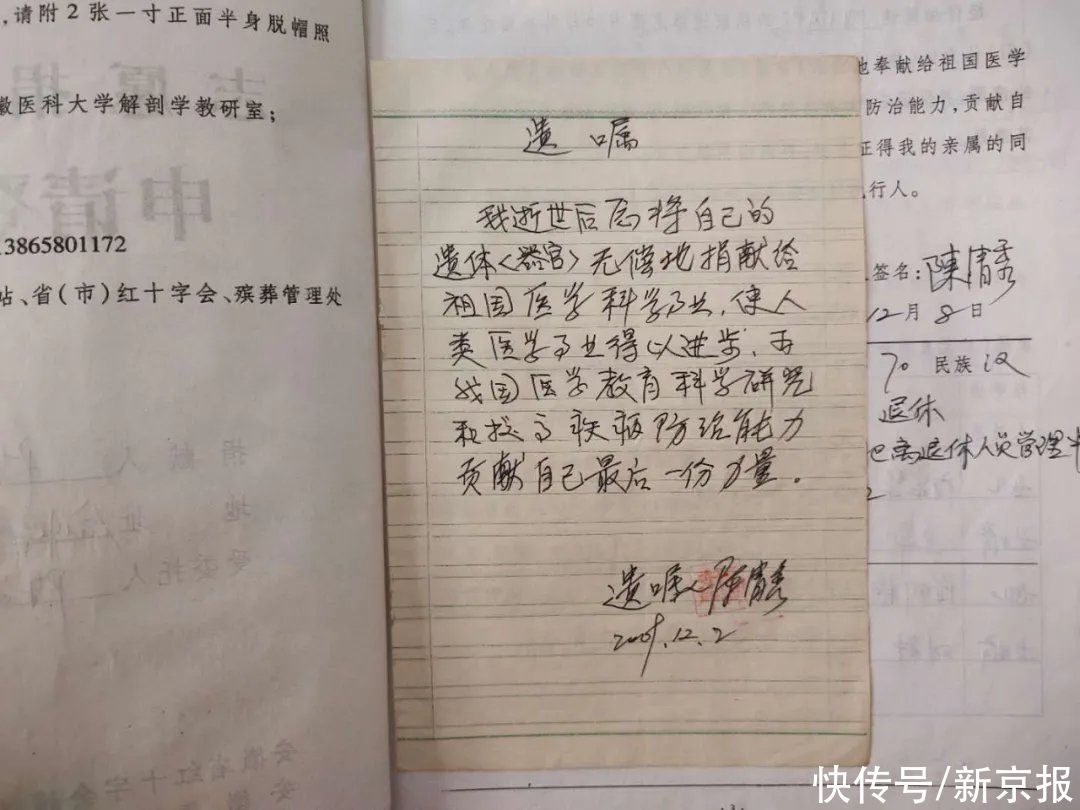 ,请附2张一寸正面半身脱帽照
徽医科大学解剖学教研室;
申请
13865801172
站、省(市)红十字会、殡葬管理处
捐献人
地址
受委托人
安徽省红十字会
遗嘱
我逝世后愿将自己的
遗体〈器官〉无偿地捐献给
祖国医学科学事业,使人
类医学事业得以进步,为
我国医学教育科学研究
和提高疾病防治能力
贡献自己最后一份力量。
遗嘱人 陈清秀
12.2
地奉献给祖国医学
防治能力,贡献自
证得我的亲属的同
行人。
签名:陳清秀
12月8日
70 民族 汉
退休
离退休人员管理
快传号/新京报